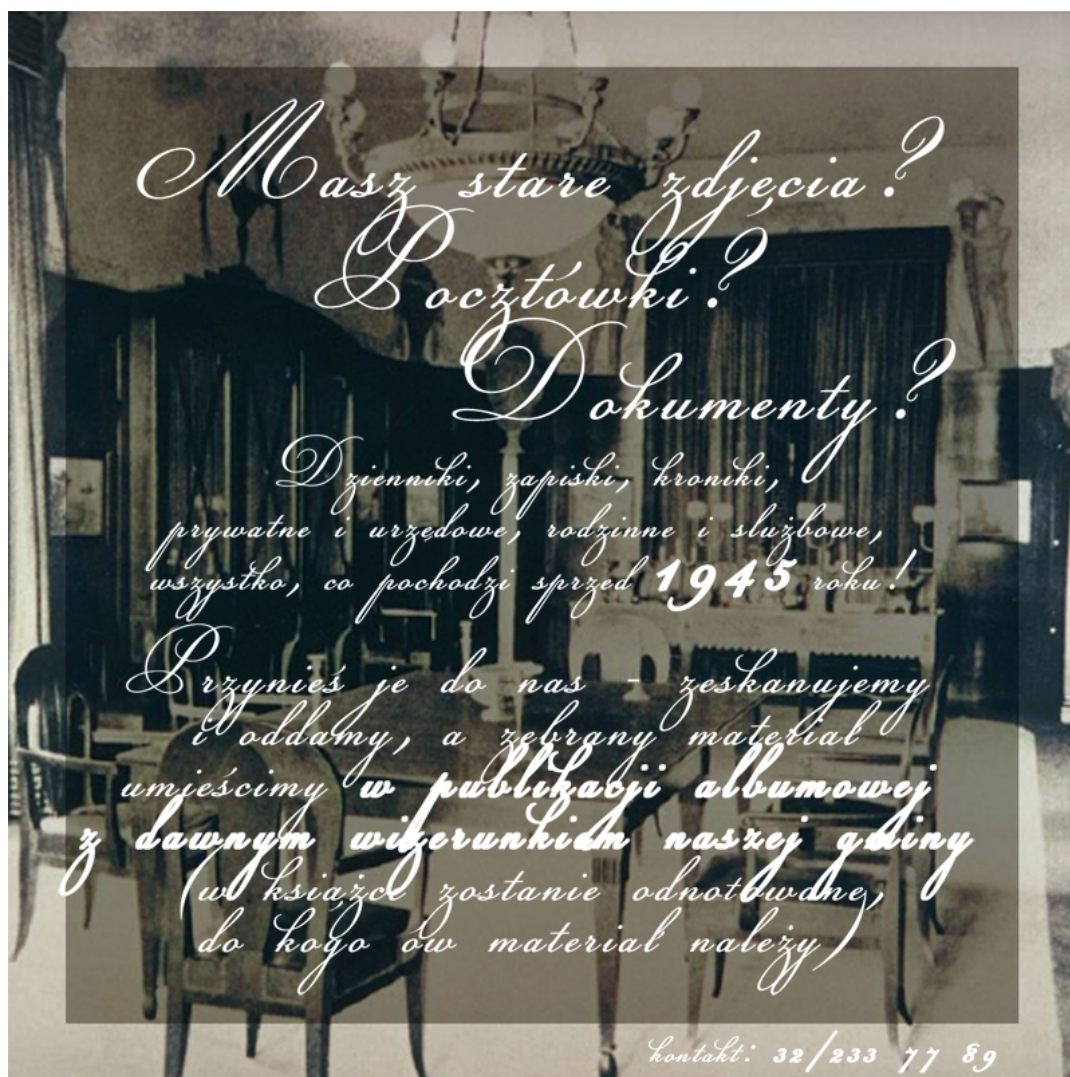 Masz stare zdjęcia?
Pocztówki?
Dokumenty?
Dzienniki, zapiski, kroniki,
prywatne i urzędowe, rodzinne i służbowe,
wszystko, co pochodzi sprzed 1945 roku!
Przynieś je do nas - zeskanujemy
i oddamy, a zebrany materiał
umieścimy w publikacji albumowej
z dawnym wizerunkiem naszej gminy
(w książce zostanie odnotowane,
do kogo ów materiał należy)
kontakt: 32/233 77 89